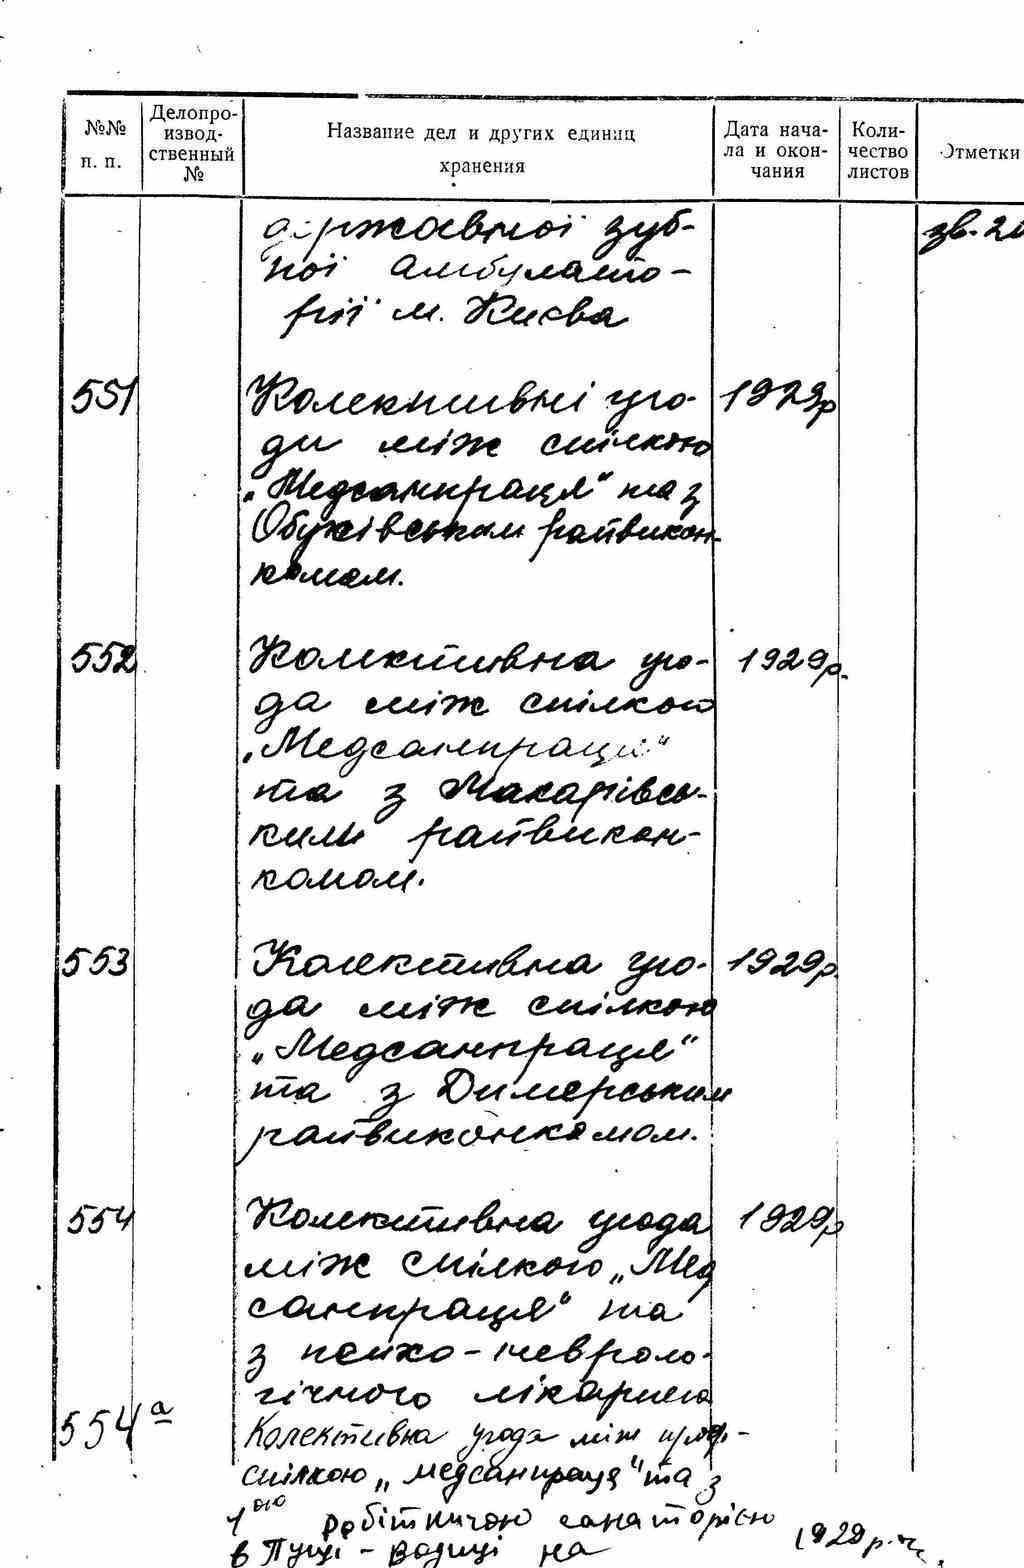 №№ п. п.
Делопро-
извод-
ственный
№
Название дел и других единиц
хранения
Дата нача-
ла и окон-
чания
Коли-
чество
листов
Отметки
державної зуб-
ної амбулато-
рії м. Києва
зв.
551 Колективні уго- 1929р
ди між спілкою
„Медсанпраця" та з
Обухівським райвикон-
комом.
552 Колективна уго- 1929р.
да між спілкою
„Медсанпраця"
та з Макарівсь-
ким райвикон-
комом.
553 Колективна уго- 1929р.
да між спілкою
„Медсанпраця"
та з Димерським
райвиконкомом.
554 Колективна угода 1929р
між спілкою „Мед
санпраця" та
з психо-невроло-
гічного лікарнею
554а Колективна угода між проф-
спілкою „медсанпраця" та з
1ою робітничою санаторією
в Пущі-водиці на 1929 р.